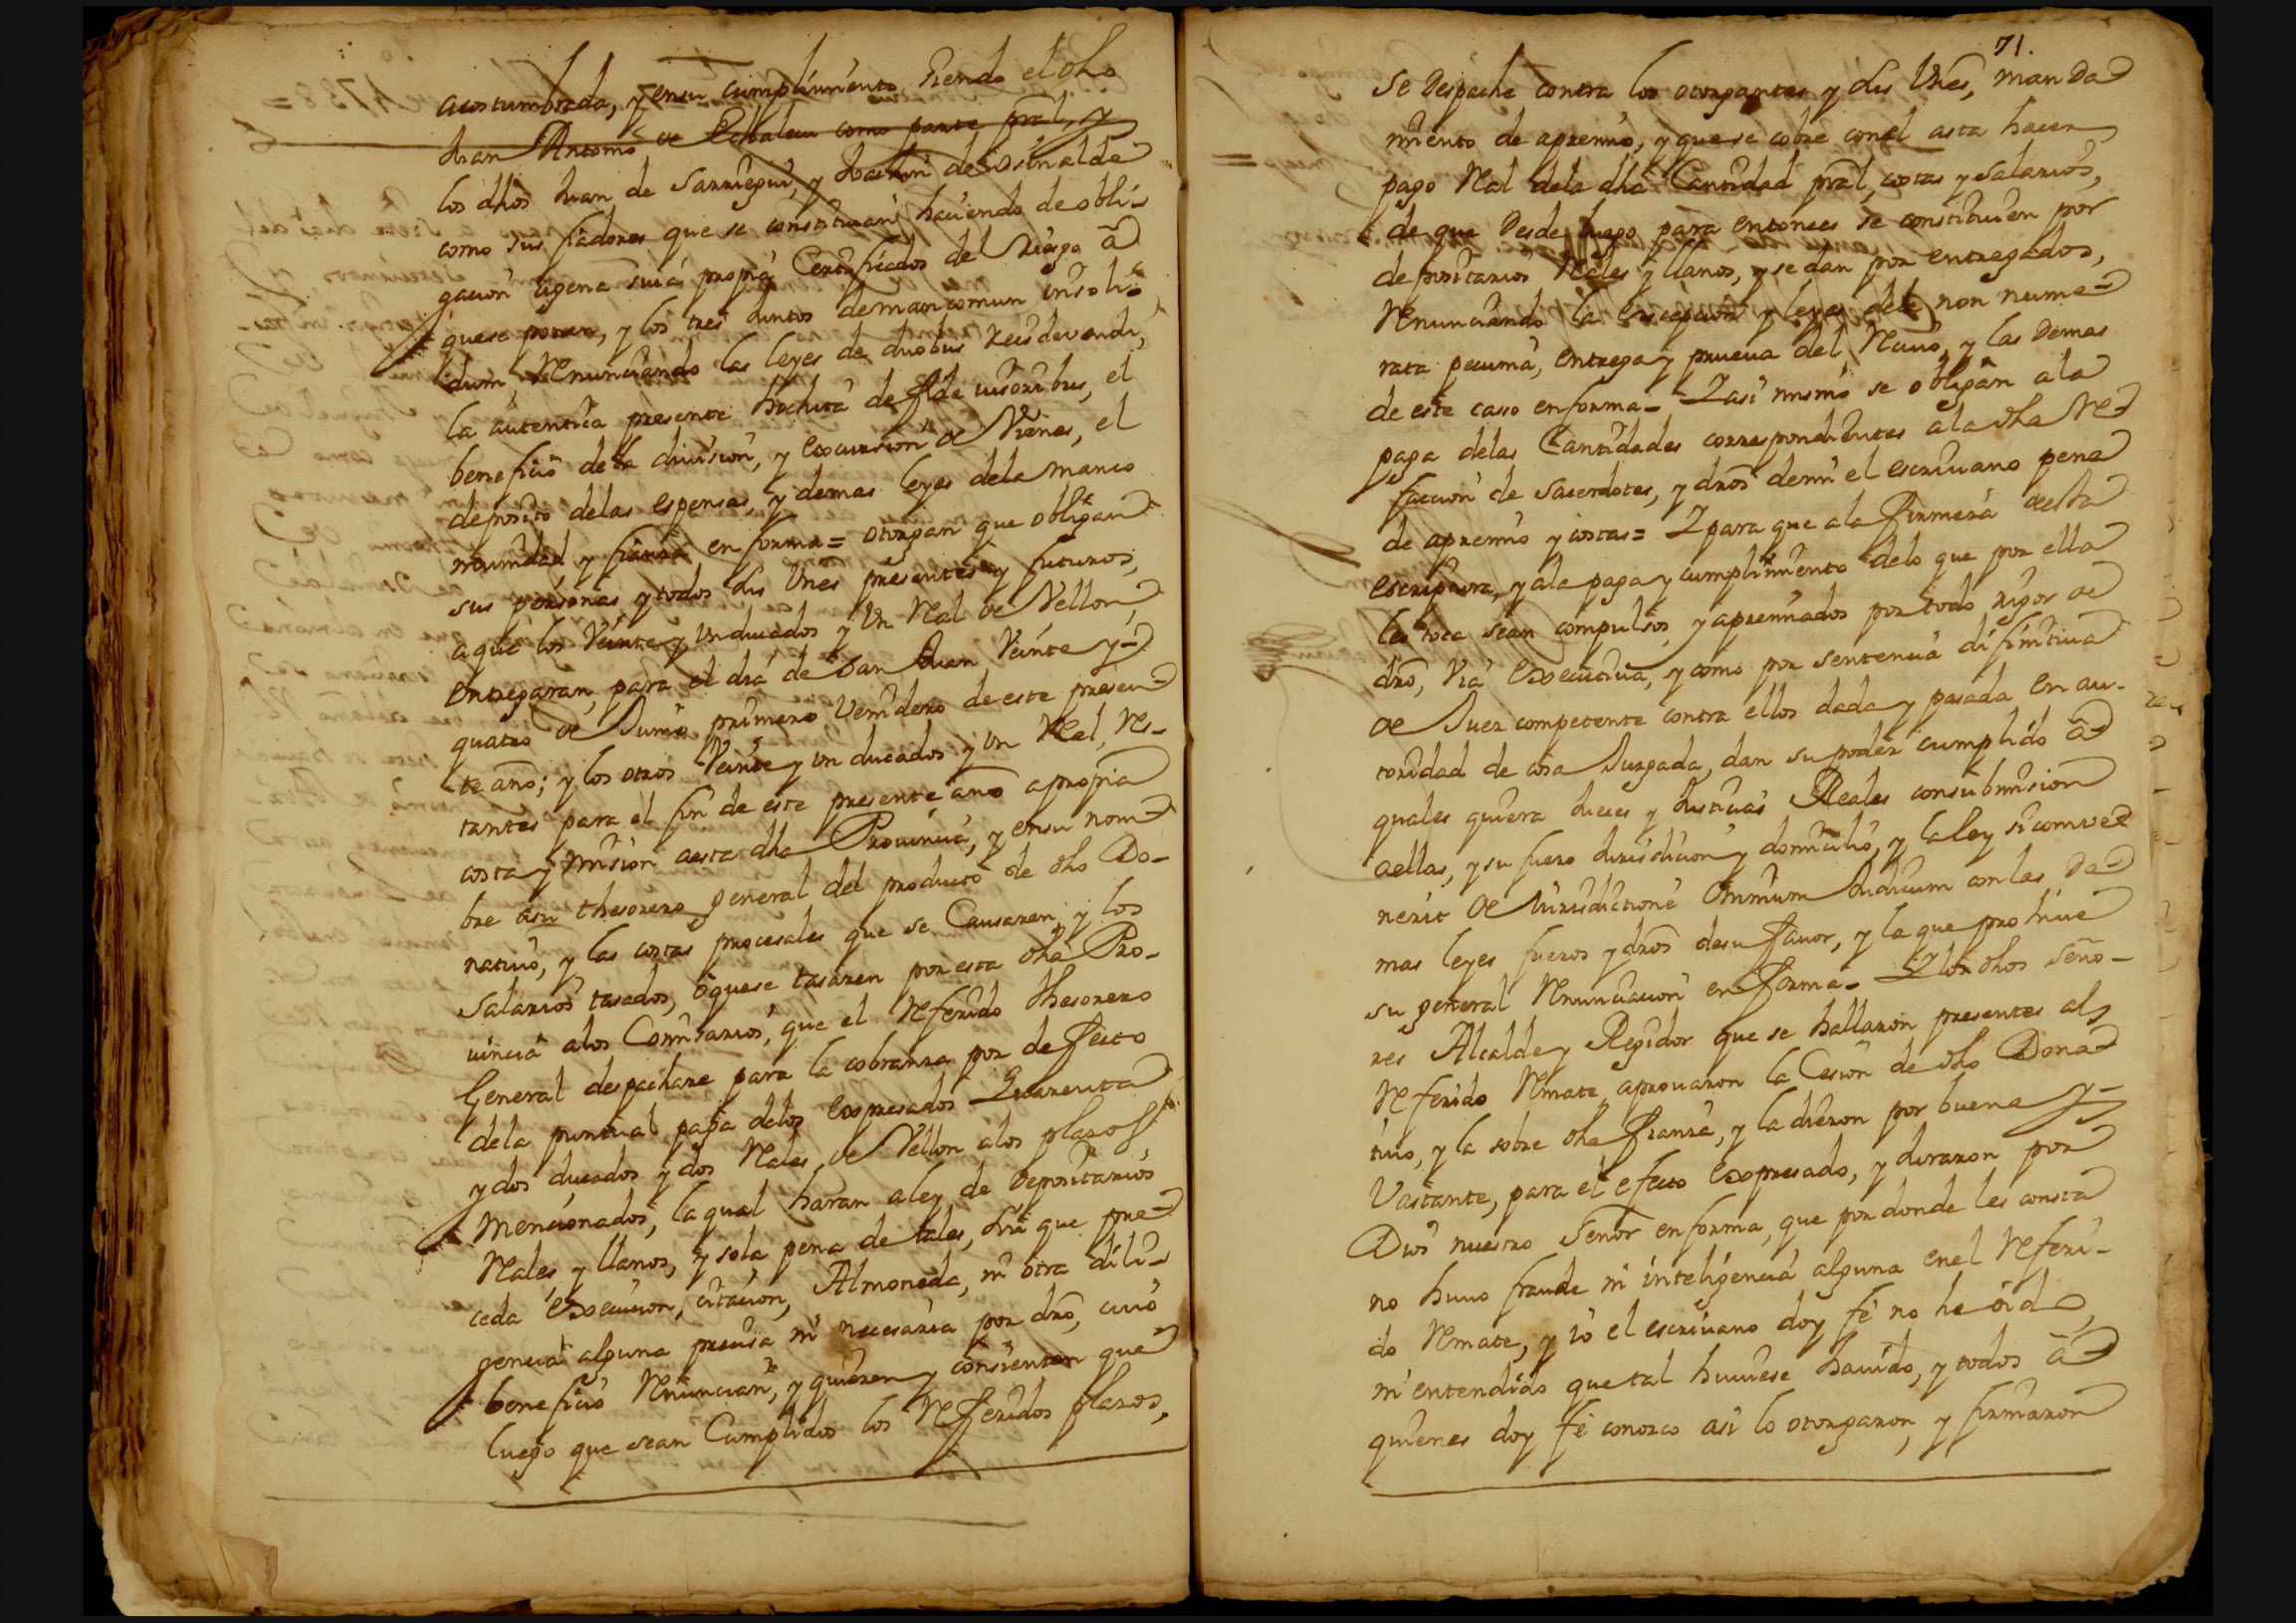 acostumbrada, y en su cumplimiento siendo el dho
Juan Antonio de como parte pral, y
los dhos Juan de Sarriegui, y Joachin de Osinalde
como sus fiadores que se constituian haciendo de obli-
gacion agena suia propia Certificados del riesgo â
que se ponen, y los tres Juntos de mancomun insoli-
dum, Renunciando las leyes de duobus reis devendi,
la autentica presente hochita de fide iusoribus, el
beneficio de la divission, y excursion de Vienes, el
deposito delas espensas, y demas leyes dela manco
munidad, y fianza en forma = otorgan que obligan
sus personas, y todos sus Vnes presentes y futuros,
a que los Veinte y un ducados y Vn Real de Vellon,
entregaran, para el dia de San Juan Veinte y-
quatro de Junio primero Venidero de este presen-
te año; y los otros Veinte y un ducados y Vn Real, Res-
tantes para el fin de este presente año a propia
costa y mision aesta dha Provincia, y ensu nom-
bre asu thesorero general del producto de dho Do-
nativo, y las costas procesales que se Causaren, y los
Salarios tasados, ô que se tasaren por esta dha Pro-
vincia alos Comisarios, que el Referido thesorero
General despachare para la cobranza por defecto
dela puntual paga delos expresados Quarenta
y dos ducados y dos Reales de Vellon alos plazos
mencionados, la qual haran a ley de Depositarios
Reales y llanos, y sola pena de tales, sin que pre-
ceda execucion, citacion, Almoneda, ni otra dili-
gencia alguna precisa ni necesaria por dro, cuio
beneficio Renuncian, y quieren y consienten que
luego que sean Cumplidos los Referidos plazos,
71.
se Despache contra los otorgantes y sus Vnes, manda
miento de apremio, y que se cobre con el asta hacer
pago Real dela dha Cantidad pral, costas y salarios,
de que Desde luego para entonces se constituien por
depositarios Reales y llanos, y se dan por entregados,
Renunciando la excepcion y leyes dela non nume-
rata pecunia, entrega y prueua del Reciuo, y las Demas
de este caso en forma - Y asi mismo se obligan ala
paga delas Cantidades correspondientes ala dha Re-
faccion de Sacerdotes, y dros demi el escriuano pena
de apremio y costas = Y para que ala firmeza desta
escriptura, y ala paga y cumplimiento delo que por ella
les toca sean compulsos, y apremiados por todo rigor de
dro, Via executiua, y como por sentencia difinitiua
de Juez competente contra ellos dada y pasada en au-
toridad de cosa Juzgada, dan su poder cumplido â
quales quiera Jueces y Justicias Reales con subimision
aellas, y su fuero Jurisdicion y domicilio, y la ley si comve
nerit de Iurisdictione Omnium Judicum con las De
mas leyes fueros y dros desu fauor, y la que prohiue
su general Renunciacion en forma - Y los dhos Seño-
res Alcalde y Regidor que se hallaron presentes al
Referido Remate, aprouaron la Cesion de dho Dona
tiuo, y la sobre dha fianza, y la dieron por buena y-
Vastante, para el efecto expresado, y Juraron por
Dios nuestro Señor en forma, que por donde les consta
no huuo fraude ni inteligencia alguna enel Referi-
do Remate, y io el escriuano doy fé no he oido,
ni entendido que tal huuiese hauido, y todos â
quienes doy fé conozco asi lo otorgaron, y firmaron